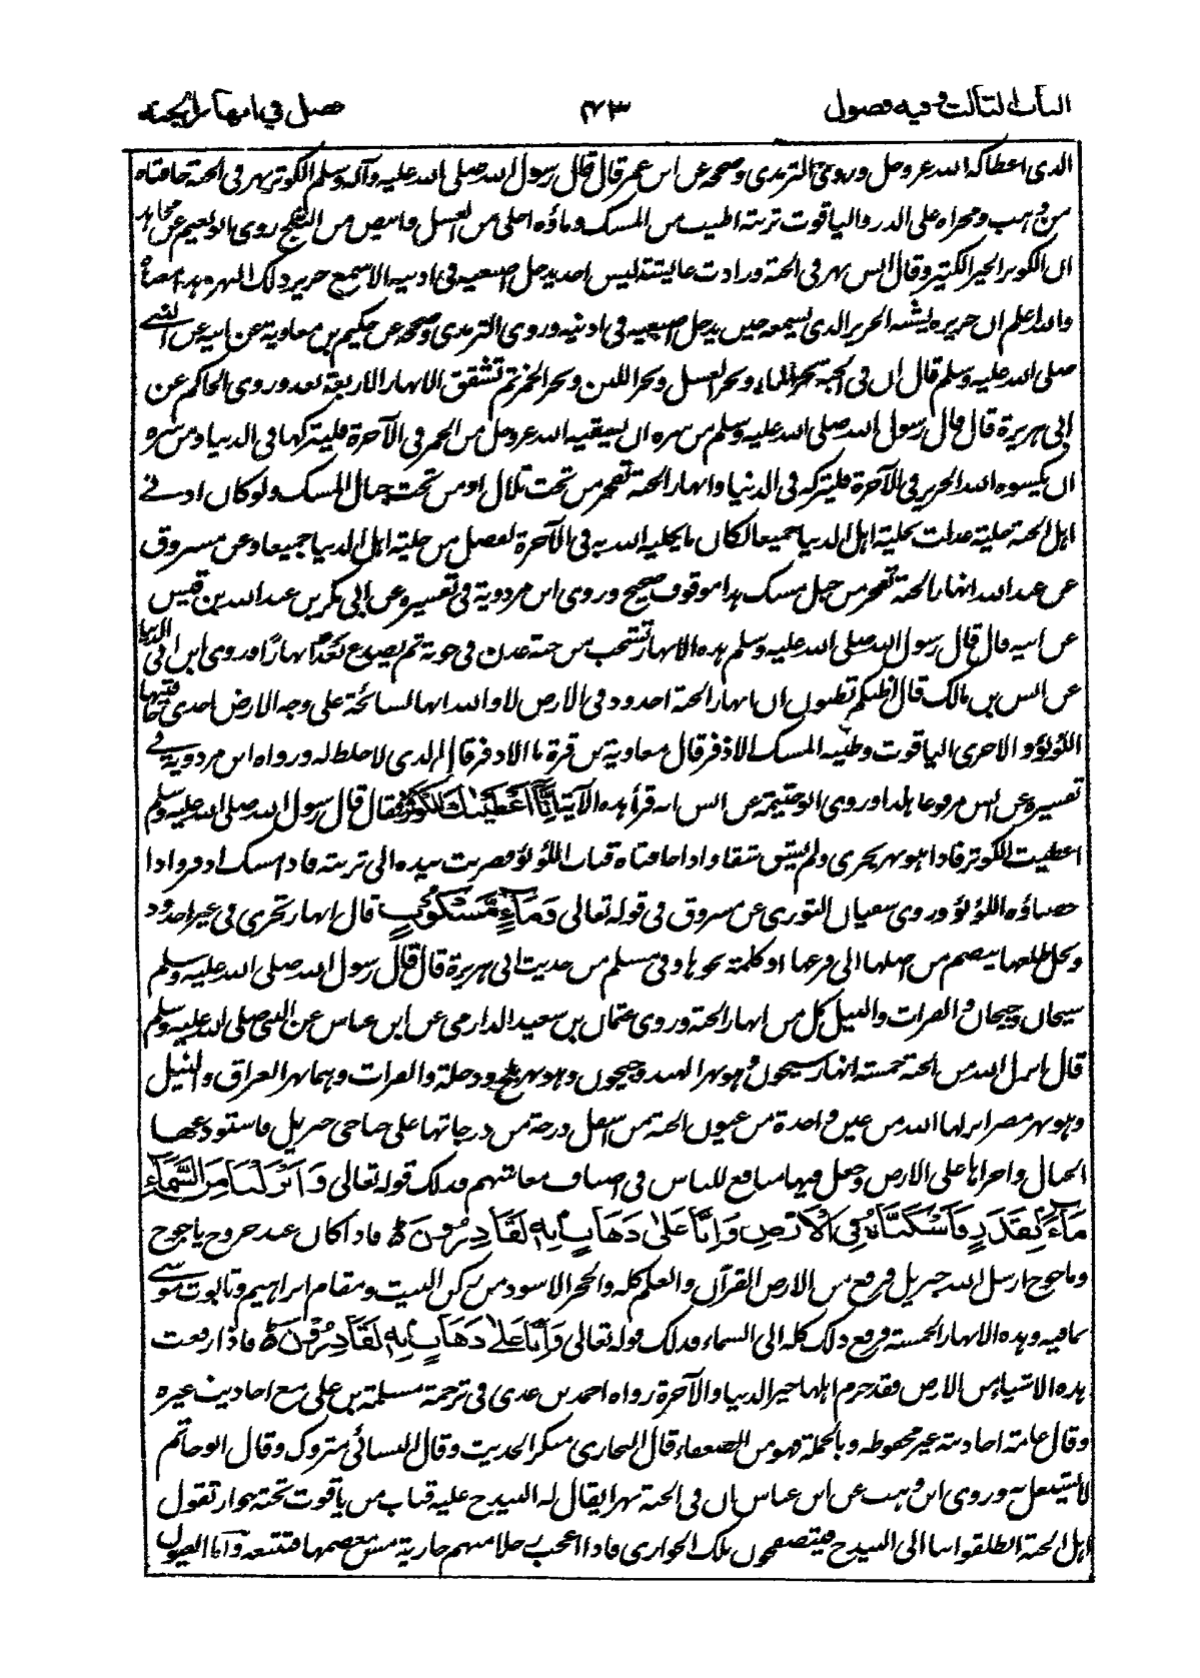 الباب الثالث وفيه فصول ٤٧٣ فصل في انهار الجنة
الذى اعطاكه الله عز وجل وروى الترمذى وصححه عن ابن عمر قال قال رسول الله صلى الله عليه وآله وسلم الكوثر نهر فى الجنة حافتاه
من ذهب ومجراه على الدر والياقوت تربته اطيب من المسك وماؤه احلى من العسل وابيض من الثلج روى ابو نعيم عن مجاهد
ان الكوثر الخير الكثير وقال انس نهر فى الجنة وزادت عائشة ليس احد يدخل اصبعيه فى اذنيه الا سمع خرير ذلك النهر وهذا معناه
والله اعلم ان خريره يشبه الخرير الذى يسمعه حين يدخل اصبعيه فى اذنيه وروى الترمذى وصححه عن حكيم بن معاوية عن ابيه عن النبى
صلى الله عليه وسلم قال ان فى الجنة بحر الماء وبحر العسل وبحر اللبن وبحر الخمر ثم تشقق الانهار الاربعة بعد وروى الحاكم عن
ابى هريرة قال قال رسول الله صلى الله عليه وسلم من سره ان يسقيه الله عز وجل من الخمر فى الآخرة فليتركها فى الدنيا ومن سره
ان يكسوه الله الحرير فى الآخرة فليتركه فى الدنيا وانهار الجنة تفجر من تحت تلال او من تحت جبال المسك ولو كان ادنى
اهل الجنة حلية عدلت بحلية اهل الدنيا جميعا لكان ما يحليه الله به فى الآخرة افضل من حلية اهل الدنيا جميعا وعن مسروق
عن عبد الله انهار الجنة تفجر من جبل مسك هذا موقوف صحيح وروى ابن مردوية فى تفسيره عن ابى بكر بن عبد الله بن قيس
عن ابيه قال قال رسول الله صلى الله عليه وسلم هذه الانهار تشخب من جنة عدن فى جوبة ثم يصدع بعد انهارا وروى ابن ابى الدنيا
عن انس بن مالك قال اظنكم تظنون ان انهار الجنة اخدود فى الارض لا والله انها لسائحة على وجه الارض احدى حافتيها
اللؤلؤ والاخرى الياقوت وطينه المسك الاذفر قال معاوية بن قرة ما الاذفر قال الذى لا خلط له ورواه ابن مردويه فى
تفسيره عن انس مرفوعا هكذا وروى ابو خيثمة عن انس انه قرأ هذه الآية اِنَّا اَعْطَيْنٰكَ الْكَوْثَرَ فقال قال رسول الله صلى الله عليه وسلم
اعطيت الكوثر فاذا هو نهر يجرى ولم يشق شقا واذا حافتاه قباب اللؤلؤ فضربت بيده الى تربته فاذا مسك اذفر واذا
حصباؤه اللؤلؤ وروى سفيان الثورى عن مسروق فى قوله تعالى وَمَاءٍ مَّسْكُوْبٍ قال انهار تجرى فى غير اخدود
ونخل طلعها ينضم من اصلها الى فرعها او كلمة نحوها وفى مسلم من حديث ابى هريرة قال قال رسول الله صلى الله عليه وسلم
سيحان وجيحان والفرات والنيل كل من انهار الجنة وروى عثمان بن سعيد الدارمى عن ابن عباس عن النبى صلى الله عليه وسلم
قال انزل الله من الجنة خمسة انهار سيحون وهو نهر الهند وجيحون وهو نهر بلخ ودجلة والفرات وهما نهر العراق والنيل
وهو نهر مصر انزلها الله من عين واحدة من عيون الجنة من اسفل درجة من درجاتها على جناحى جبريل فاستودعها
الجبال واجراها على الارض وجعل فيها منافع للناس فى اصناف معائشهم فذلك قوله تعالى وَاَنْزَلْنَا مِنَ السَّمَآءِ
مَآءً بِقَدَرٍ فَاَسْكَنَّاهُ فِى الْاَرْضِ وَاِنَّا عَلٰى ذَهَابٍ بِهٖ لَقَادِرُوْنَ فاذا كان عند خروج ياجوج
وماجوج ارسل الله جبريل فرفع من الارض القرآن والعلم كله والحجر الاسود من ركن البيت ومقام ابراهيم وتابوت موسى
بما فيه وهذه الانهار الخمسة فرفع ذلك كله الى السماء فذلك قوله تعالى وَاِنَّا عَلٰى ذَهَابٍ بِهٖ لَقَادِرُوْنَ فاذا رفعت
هذه الاشياء من الارض فقد حرم اهلها خير الدنيا والآخرة رواه احمد بن عدى فى ترجمة مسلمة بن على مع احاديث غيره
وقال عامة احاديثه غير محفوظه وبالجملة فهو من الضعفاء قال البخارى منكر الحديث وقال النسائى متروك وقال ابو حاتم
لا يشتغل به وروى ابن وهب عن ابن عباس ان فى الجنة نهرا يقال له البيدح عليه قباب من ياقوت تحته جوار تقول
اهل الجنة انطلقوا بنا الى البيدح فيتصفحون تلك الجوارى فاذا اعجب رجلا منهم جارية مس معصمها فتتبعه واما العيون